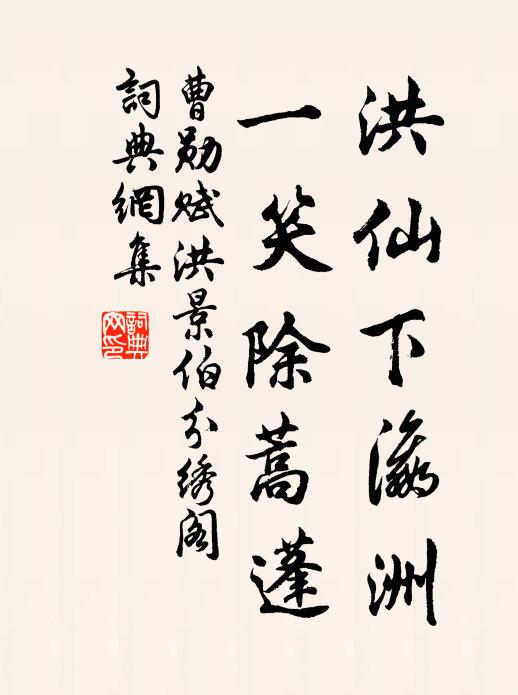 洪仙下瀛洲
一笑除蒿蓬
曹勋赋洪景伯分绣阁
詞典網集
詞典網印